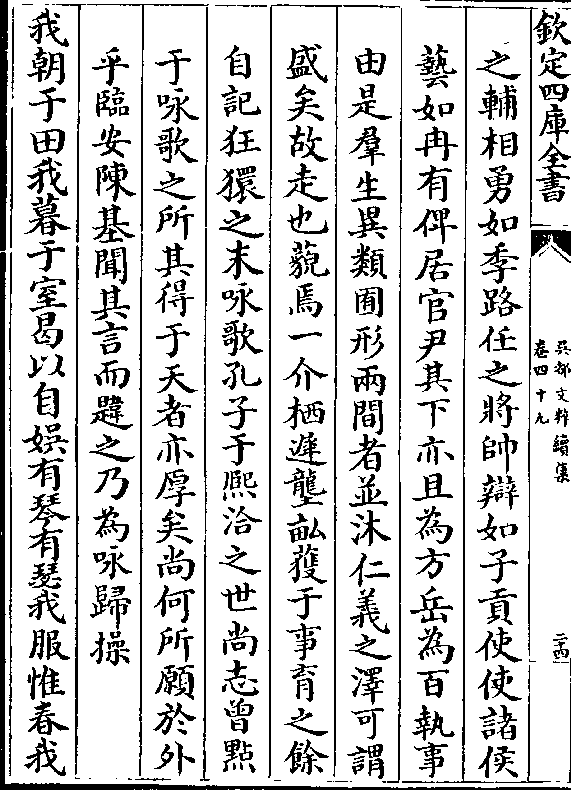 欽定四庫全書
吳都文粹續集
卷四十九
二十四
之輔相勇如季路任之將帥辯如子貢使使諸侯
藝如冉有俾居官尹其下亦且為方岳為百執事
由是羣生異類囿形兩間者並沐仁義之澤可謂
盛矣故走也藐焉一介栖遲壟畝獲于事育之餘
自記狂獧之末咏歌孔子于熈洽之世尚志曾㸃
于咏歌之所其得于天者亦厚矣尚何所願於外
乎臨安陳基聞其言而韙之乃為咏歸操
我朝于田我暮于室曷以自娛有琴有瑟我服惟春我